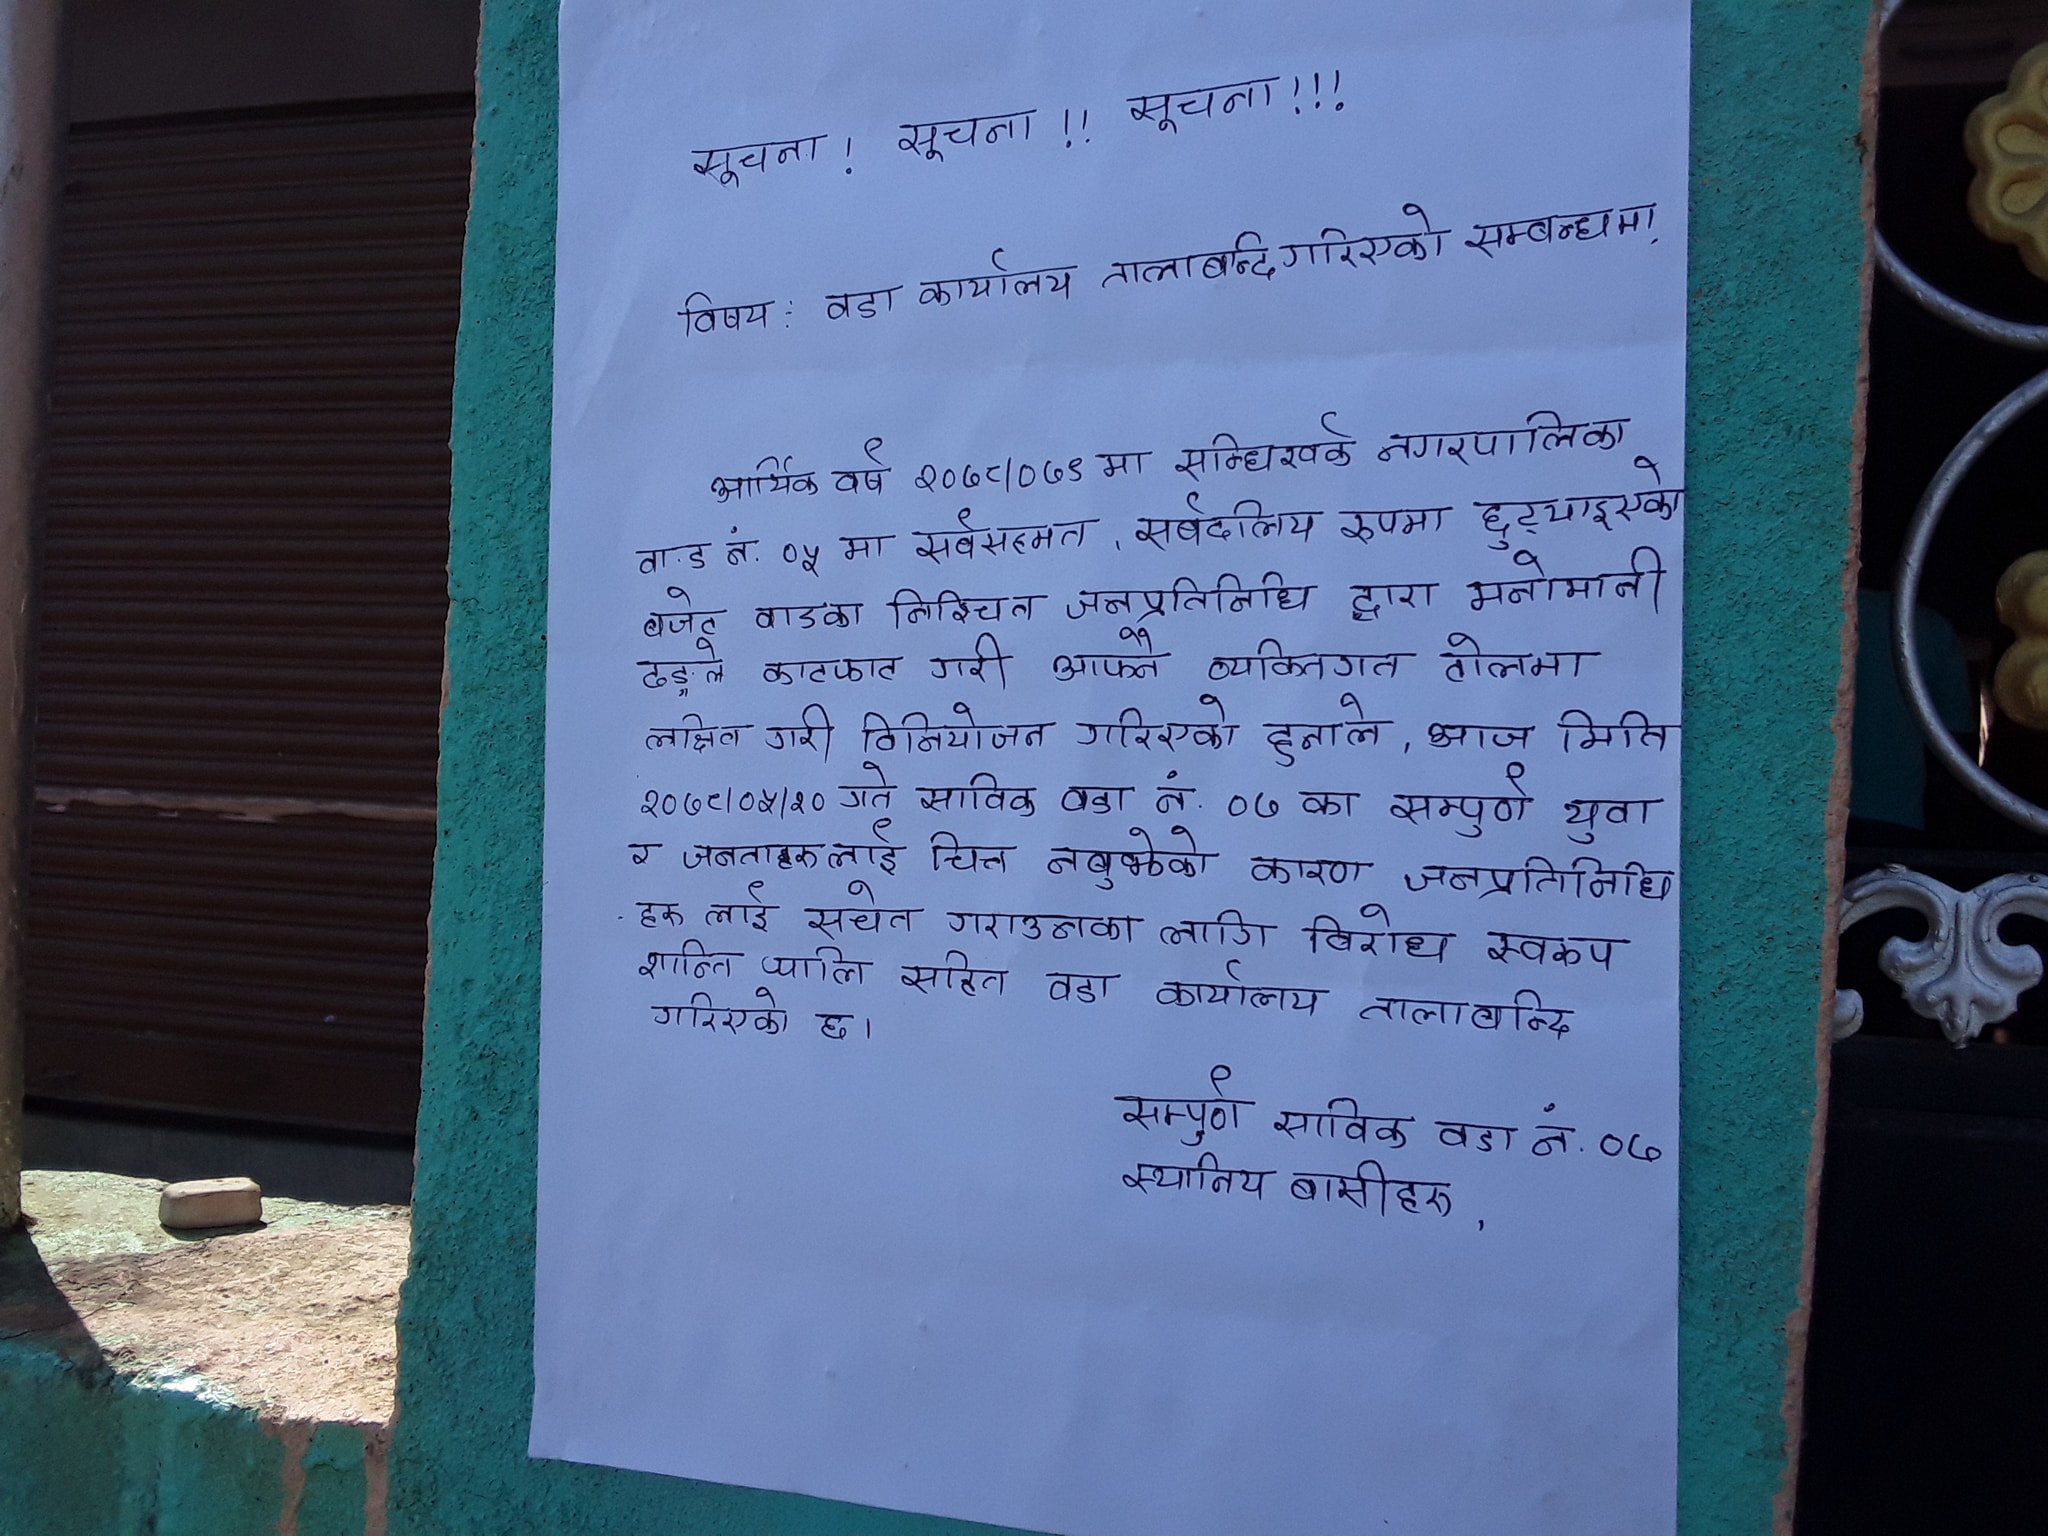 सूचना ! सूचना !! सूचना !!!
विषय : वडा कार्यालय तालाबन्दि गरिएको सम्बन्धमा.
आर्थिक वर्ष २०७८/०७९ मा सन्धिखर्क नगरपालिका
वा.ड नं. ०५ मा सर्वसहमत, सर्बदलिय रुपमा छुट्याइएको
बजेट वाडका निश्चित जनप्रतिनिधि द्वारा मनोमानी
ढङ्गले काटफाट गरी आफ्नै व्यक्तिगत टोलमा
लक्षित गरी विनियोजन गरिएको हुनाले, आज मिति
२०७८/०५/२० गते साविक वडा नं. ०७ का सम्पुर्ण युवा
र जनताहरुलाई चित्त नबुझेको कारण जनप्रतिनिधि
हरु लाई सचेत गराउनका लागि विरोध स्वरुप
शान्ति र्‍यालि सहित वडा कार्यालय तालाबन्दि
गरिएको छ।
सम्पुर्ण साविक वडा नं. ०७
स्थानिय बासीहरु,